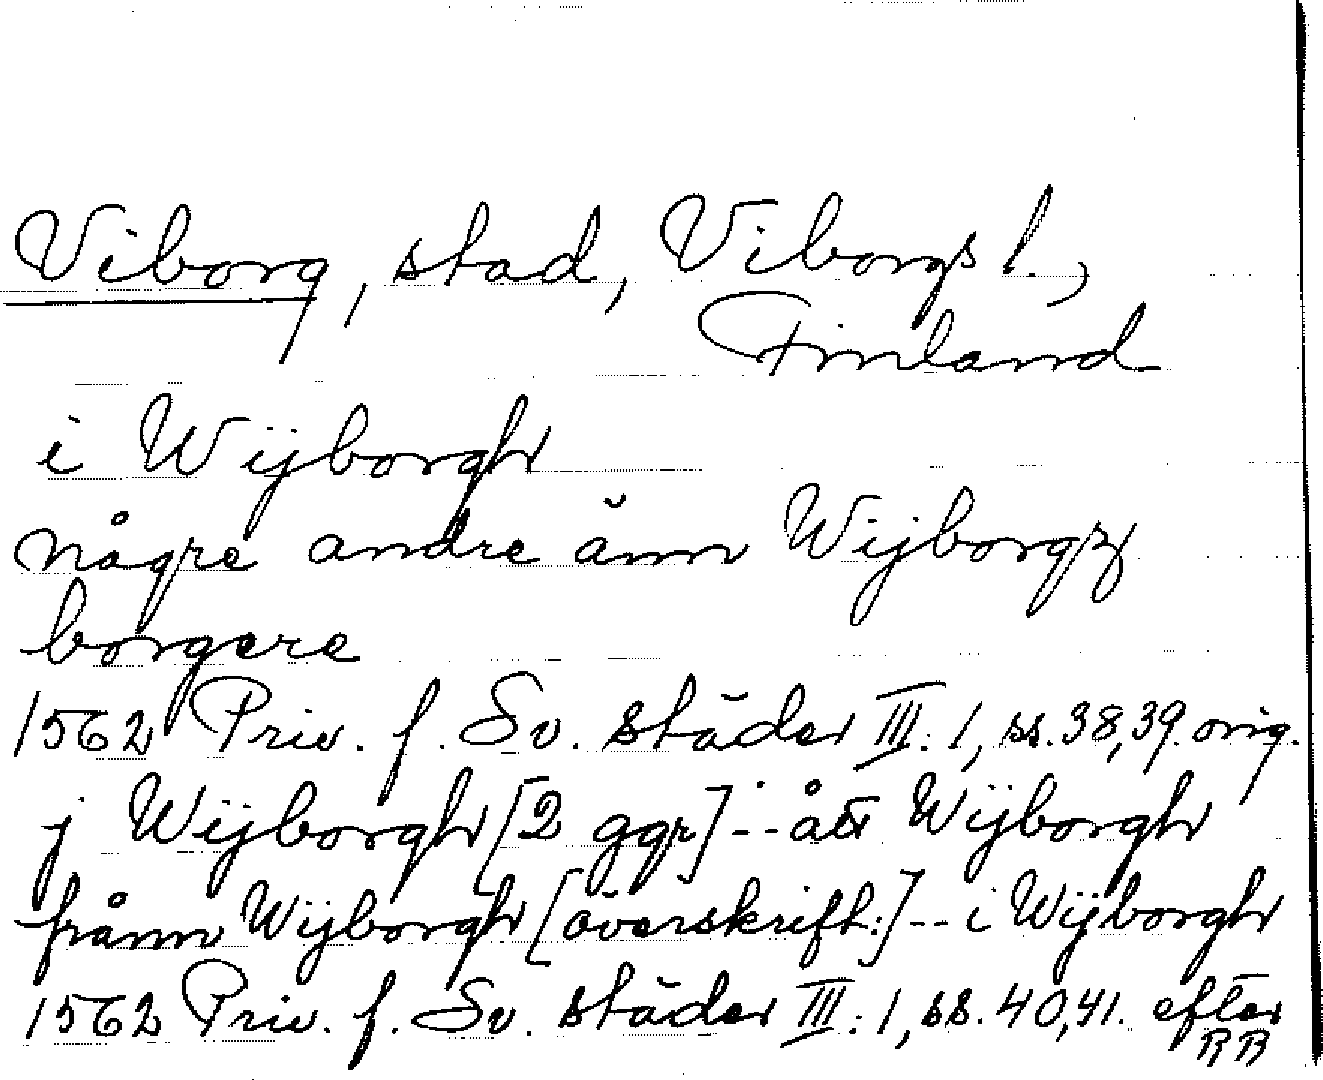 Viborg, stad, Viborgs l.,
Finland
i Wijborgh
någre andre änn Wijborgz
borgere
1562 Priv. f. Sv. städer III:1, ss. 38,39. orig.
j Wijborgh [2 ggr] -- ått Wijborgh
frånn Wijborgh [överskrift:] -- i Wijborgh
1562 Priv. f. Sv. städer III:1, ss. 40,41. efter
RR